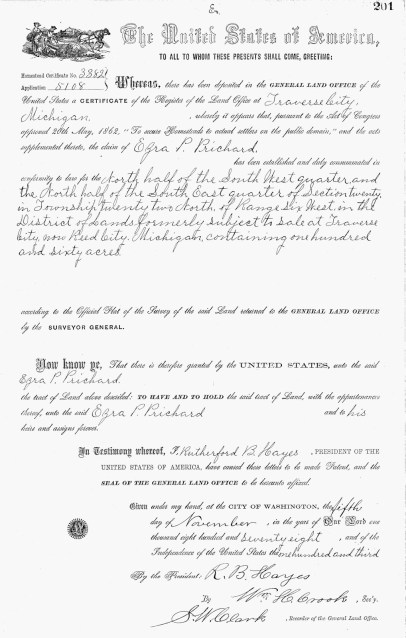 201
The United States of America,
TO ALL TO WHOM THESE PRESENTS SHALL COME, GREETING:
Homestead Certificate No. 3382
Application 5108
Whereas, there has been deposited in the GENERAL LAND OFFICE of the
United States a CERTIFICATE of the Register of the Land Office at Traverse City,
Michigan, whereby it appears that, pursuant to the Act of Congress
approved 20th May, 1862, "To secure Homesteads to actual settlers on the public domain," and the acts
supplemental thereto, the claim of Ezra P. Prichard
has been established and duly consummated in
conformity to law for the North half of the South West quarter and
the North half of the South East quarter of Section twenty,
in Township twenty two North, of Range Six West, in the
District of Lands formerly subject to sale at Traverse
City, now Reed City, Michigan, containing one hundred
and sixty acres
according to the Official Plat of the Survey of the said Land returned to the GENERAL LAND OFFICE
by the SURVEYOR GENERAL.
Now know ye, That there is therefore granted by the UNITED STATES, unto the said
Ezra P. Prichard
the tract of Land above described: TO HAVE AND TO HOLD the said tract of Land, with the appurtenances
thereof, unto the said Ezra P. Prichard and to his
heirs and assigns forever.
In Testimony whereof, I, Rutherford B. Hayes, PRESIDENT OF THE
UNITED STATES OF AMERICA, have caused these letters to be made Patent, and the
SEAL OF THE GENERAL LAND OFFICE to be hereunto affixed.
Given under my hand, at the CITY OF WASHINGTON, the fifth
day of November, in the year of Our Lord one
thousand eight hundred and seventy eight, and of the
Independence of the United States the one hundred and third
By the President: R. B. Hayes
By Wm. H. Crook, Sec'y.
S. W. Clark, Recorder of the General Land Office.